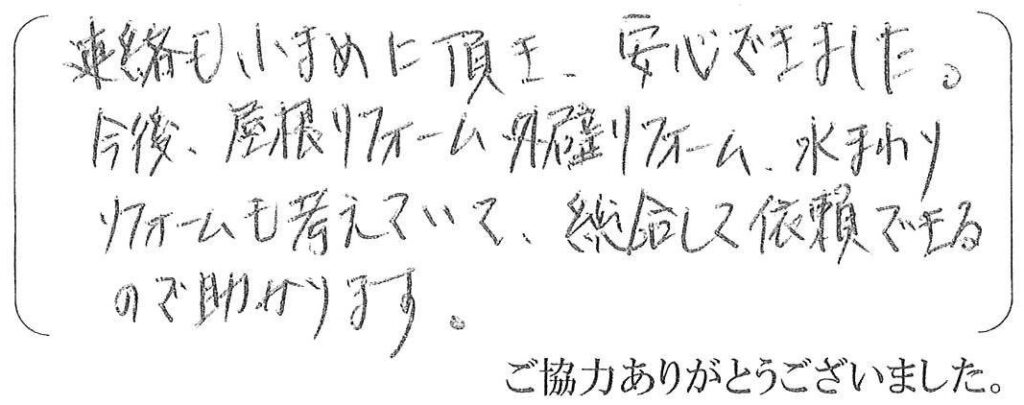 連絡も小まめに頂き、安心できました。
今後、屋根リフォーム外壁リフォーム、水まわり
リフォームも考えていて、総合して依頼できる
ので助かります。
ご協力ありがとうございました。